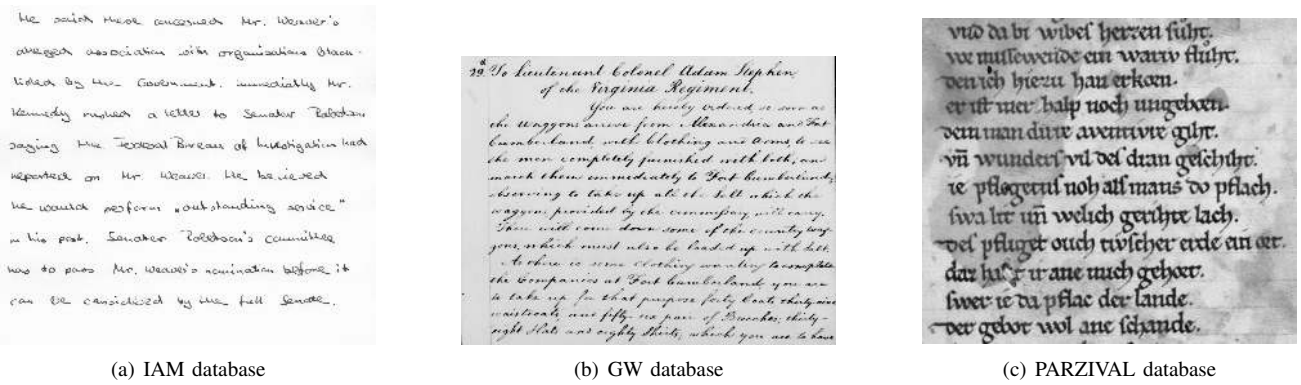 He said these concerned Mr. Weaver's
alleged association with organisations black-
listed by the Government. immediately Mr.
Kennedy rushed a letter to Senator Robertson
saying the Federal Bureau of Investigation had
reported on Mr. Weaver. He believed
he would perform „outstanding service"
in his post. Senator Robertson's committee
has to pass Mr. Weaver's nomination before it
can be considered by the full Senate.
(a) IAM database
29.d To Lieutenant Colonel Adam Stephen,
of the Virginia Regiment.
You are hereby ordered, so soon as
the waggons arrive from Alexandria and Fort
Cumberland, with Clothing and Arms, to see
the men completely furnished with both, and
march them immediately to Fort Cumberland;
observing to take up all the Salt which the
waggons provided by the commissary will carry.
There will come down some of the country wag-
gons, which must also be loaded up with Salt.
As there is some clothing wanting to complete
the Companies at Fort Cumberland, you are
to take up for that purpose forty Coats thirty-nine
waistcoats, and fifty-six pair of Breeches; thirty-
eight Hats and eighty Shirts; which you are to have
(b) GW database
vnd da bi wibes herzen fuͦht.
vor missewende ein wariv fluht.
den ich hiezu han erkorn.
er ist mer halp noch ungeborn.
dem man dirre aventivre giht.
vn̄ wunders vil des dran geschiht.
ie pflegents noh als mans do pflach.
swa lit un̄ welich gerihte lach.
des pfliget ouch tivscher erde ein ort.
daz ir ane mich gehort.
swer ie da pflac der lande.
der gebot wol ane schande.
(c) PARZIVAL database